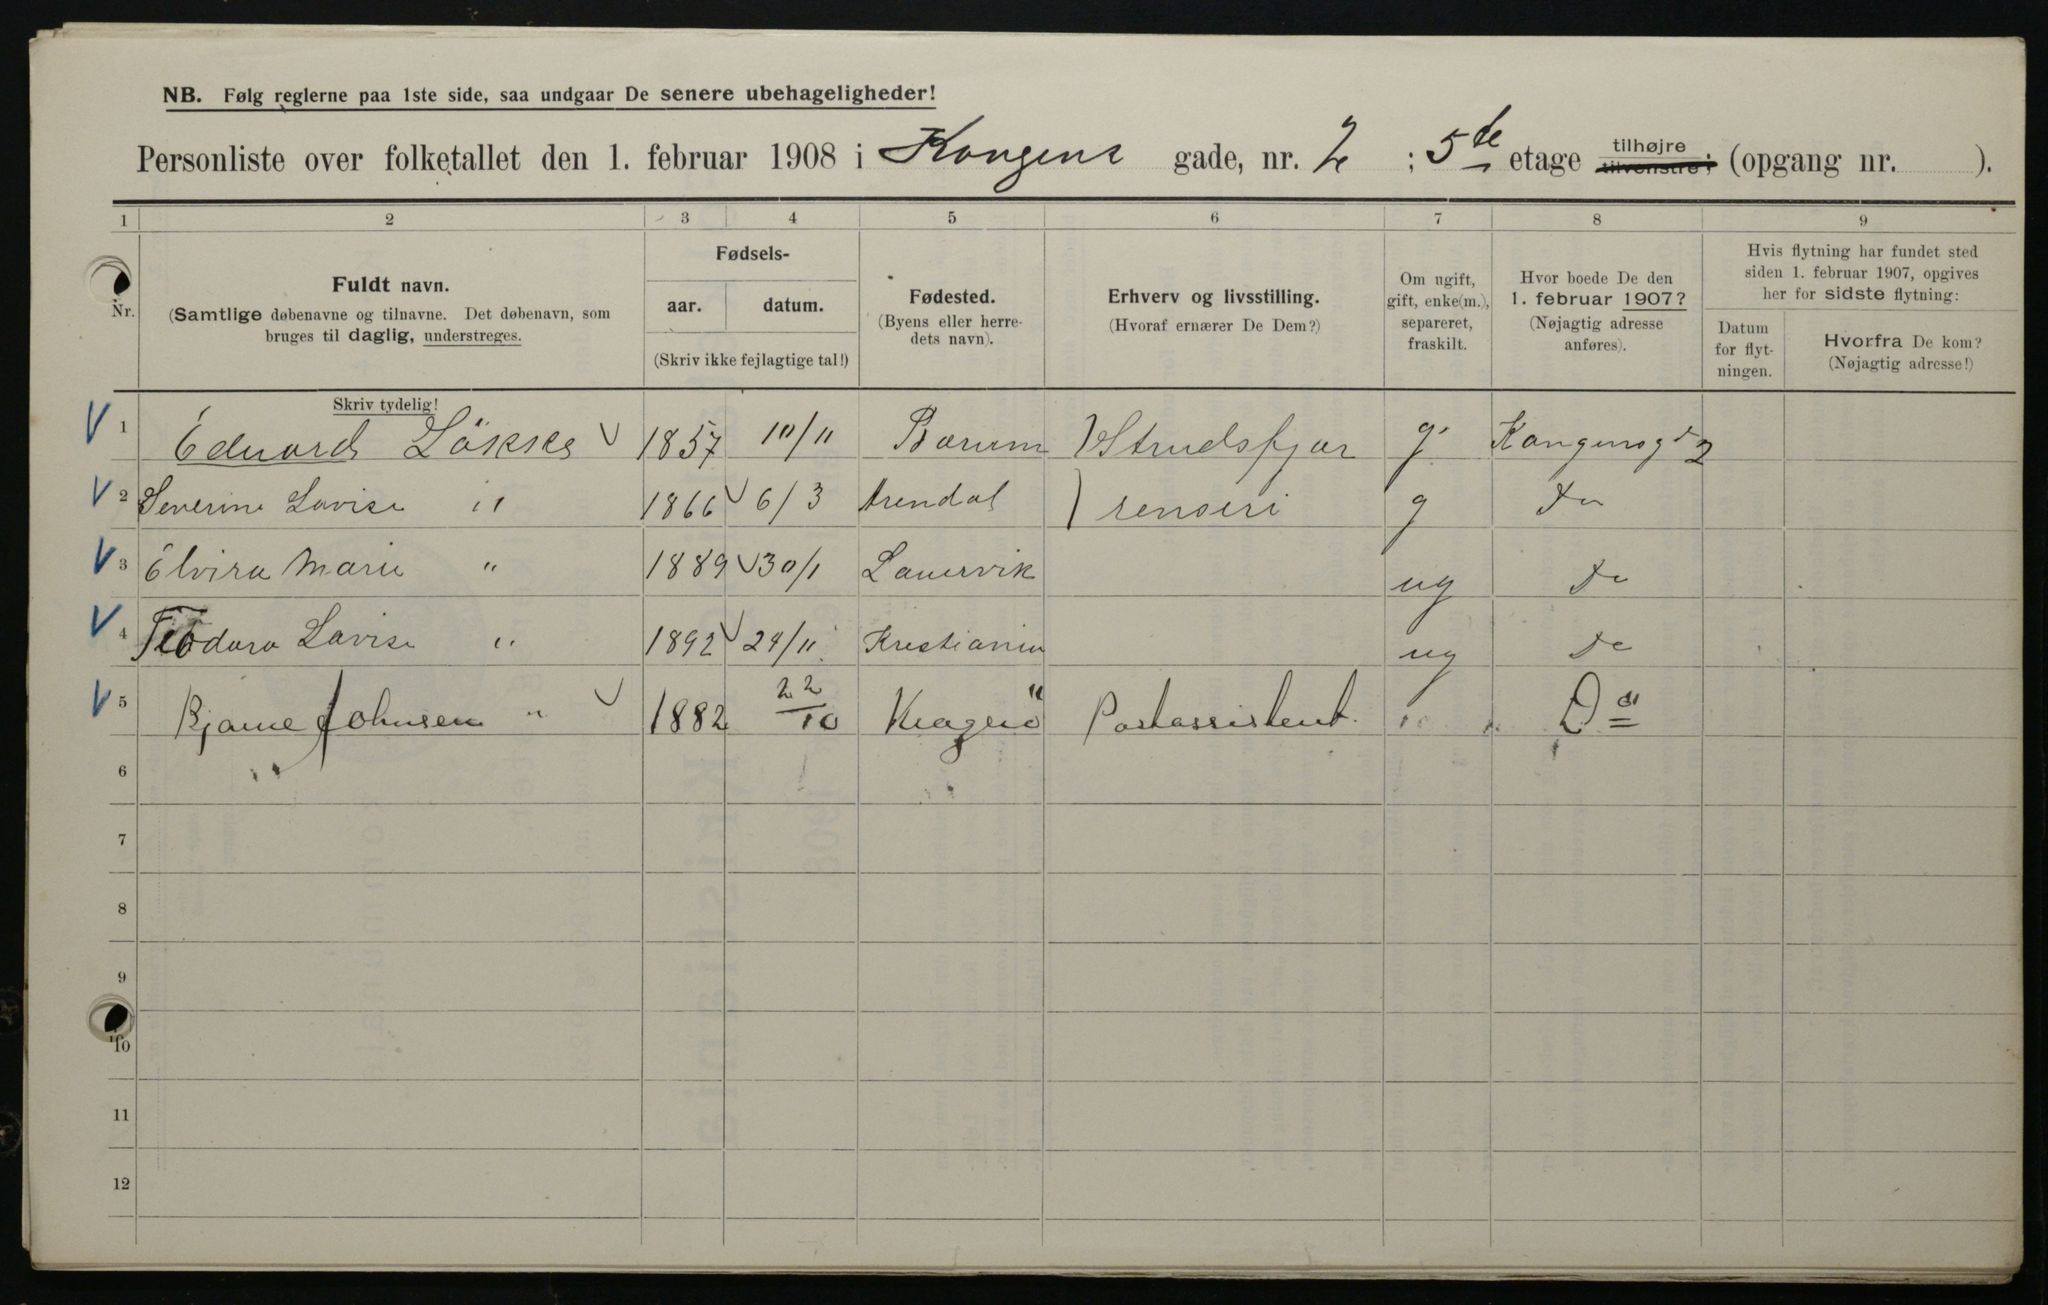 NB. Følg reglerne paa 1ste side, saa undgaar De senere ubehageligheder!
Personliste over folketallet den 1. februar 1908 i Kongens gade, nr. 2 ; 5te etage tilhøjre tilvenstre; (opgang nr. ).
1 2 3 4 5 6 7 8 9
Nr.
Fuldt navn.
(Samtlige døbenavne og tilnavne. Det døbenavn, som
bruges til daglig, understreges.
Skriv tydelig!
Fødsels-
aar. datum.
(Skriv ikke fejlagtige tal!)
Fødested.
(Byens eller herre-
dets navn).
Erhverv og livsstilling.
(Hvoraf ernærer De Dem?)
Om ugift,
gift, enke(m.),
separeret,
fraskilt.
Hvor boede De den
1. februar 1907?
(Nøjagtig adresse
anføres).
Hvis flytning har fundet sted
siden 1. februar 1907, opgives
her for sidste flytning:
Datum
for flyt-
ningen.
Hvorfra De kom?
(Nøjagtig adresse!)
1 Eduard Løkske 1857 10/11 Bærum Strudsfjær g. Kongensgd 2
2 Severine Lovise " 1866 6/3 Arendal renseri g Do
3 Elvira Marie " 1889 30/1 Laurvik ug Do
4 Teodora Lovise " 1892 24/11 Kristiania ug Do
5 Bjarne Johnsen " 1882 22/10 Kragerö Postassistent. " Do
6
7
8
9
10
11
12